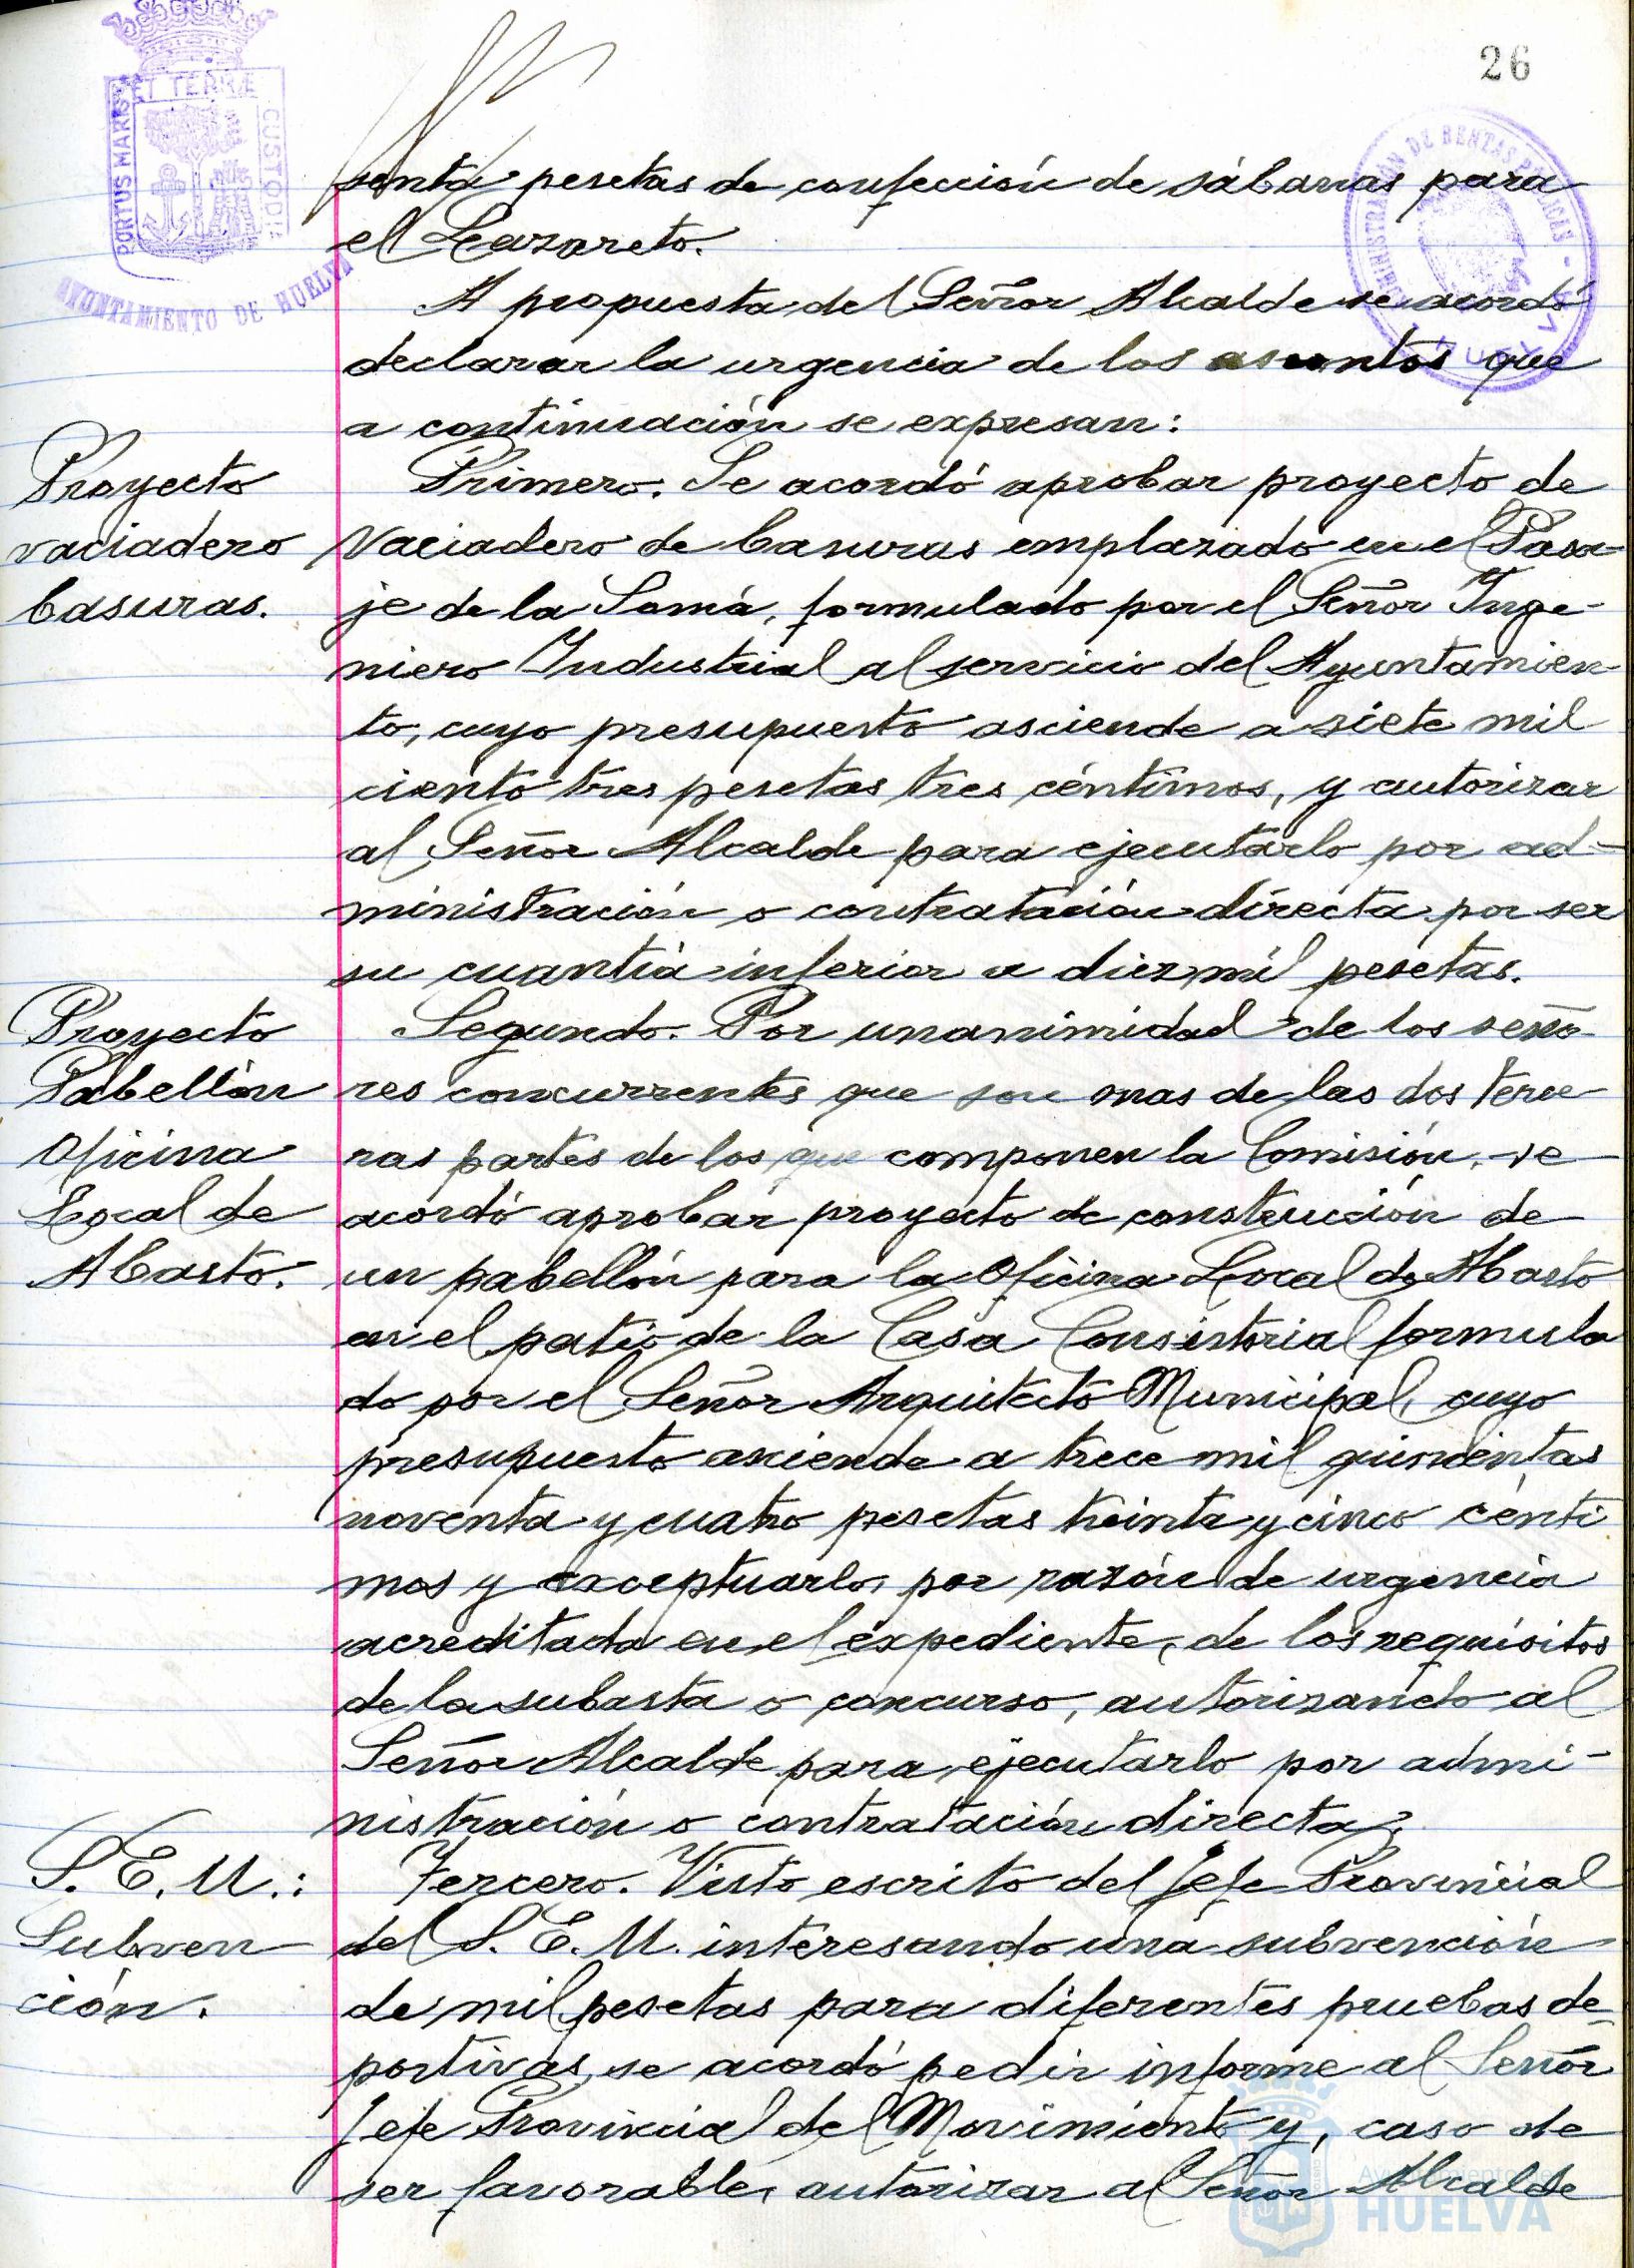 26
PORTUS MARIS ET TERRÆ CUSTODIA
AYUNTAMIENTO DE HUELVA
ADMINISTRACIÓN DE RENTAS PÚBLICAS - HUELVA
senta pesetas de confección de sábanas para
el Lazareto.
A propuesta del Señor Alcalde se acordó
declarar la urgencia de los asuntos que
a continuación se expresan:
Proyecto
vaciadero
basuras.
Primero. Se acordó aprobar proyecto de
Vaciadero de basuras emplazado en el Pasa-
je de la Soma, formulado por el Señor Inge-
niero Industrial al servicio del Ayuntamien-
to, cuyo presupuesto asciende a siete mil
ciento tres pesetas tres céntimos, y autorizar
al Señor Alcalde para ejecutarlo por ad-
ministración o contratación directa por ser
su cuantía inferior a diez mil pesetas.
Proyecto
Pabellón
Oficina
Local de
Abasto.
Segundo. Por unanimidad de los seño-
res concurrentes que son mas de las dos terce-
ras partes de los que componen la Comisión, se
acordó aprobar proyecto de construcción de
un pabellón para la Oficina Local de Abasto
en el patio de la Casa Consistorial formula
do por el Señor Arquitecto Municipal, cuyo
presupuesto asciende a trece mil quinientas
noventa y cuatro pesetas treinta y cinco cénti
mos y exceptuarlo, por razón de urgencia
acreditada en el expediente, de los requisitos
de la subasta o concurso, autorizando al
Señor Alcalde para ejecutarlo por admi-
nistración o contratación directa.
S. E. U.:
Subven
ción.
Tercero. Visto escrito del Jefe Provincial
del S. E. U. interesando una subvención
de mil pesetas para diferentes pruebas de-
portivas, se acordó pedir informe al Señor
Jefe Provincial del Movimiento y, caso de
ser favorable, autorizar al Señor Alcalde
Ayuntamiento de
HUELVA